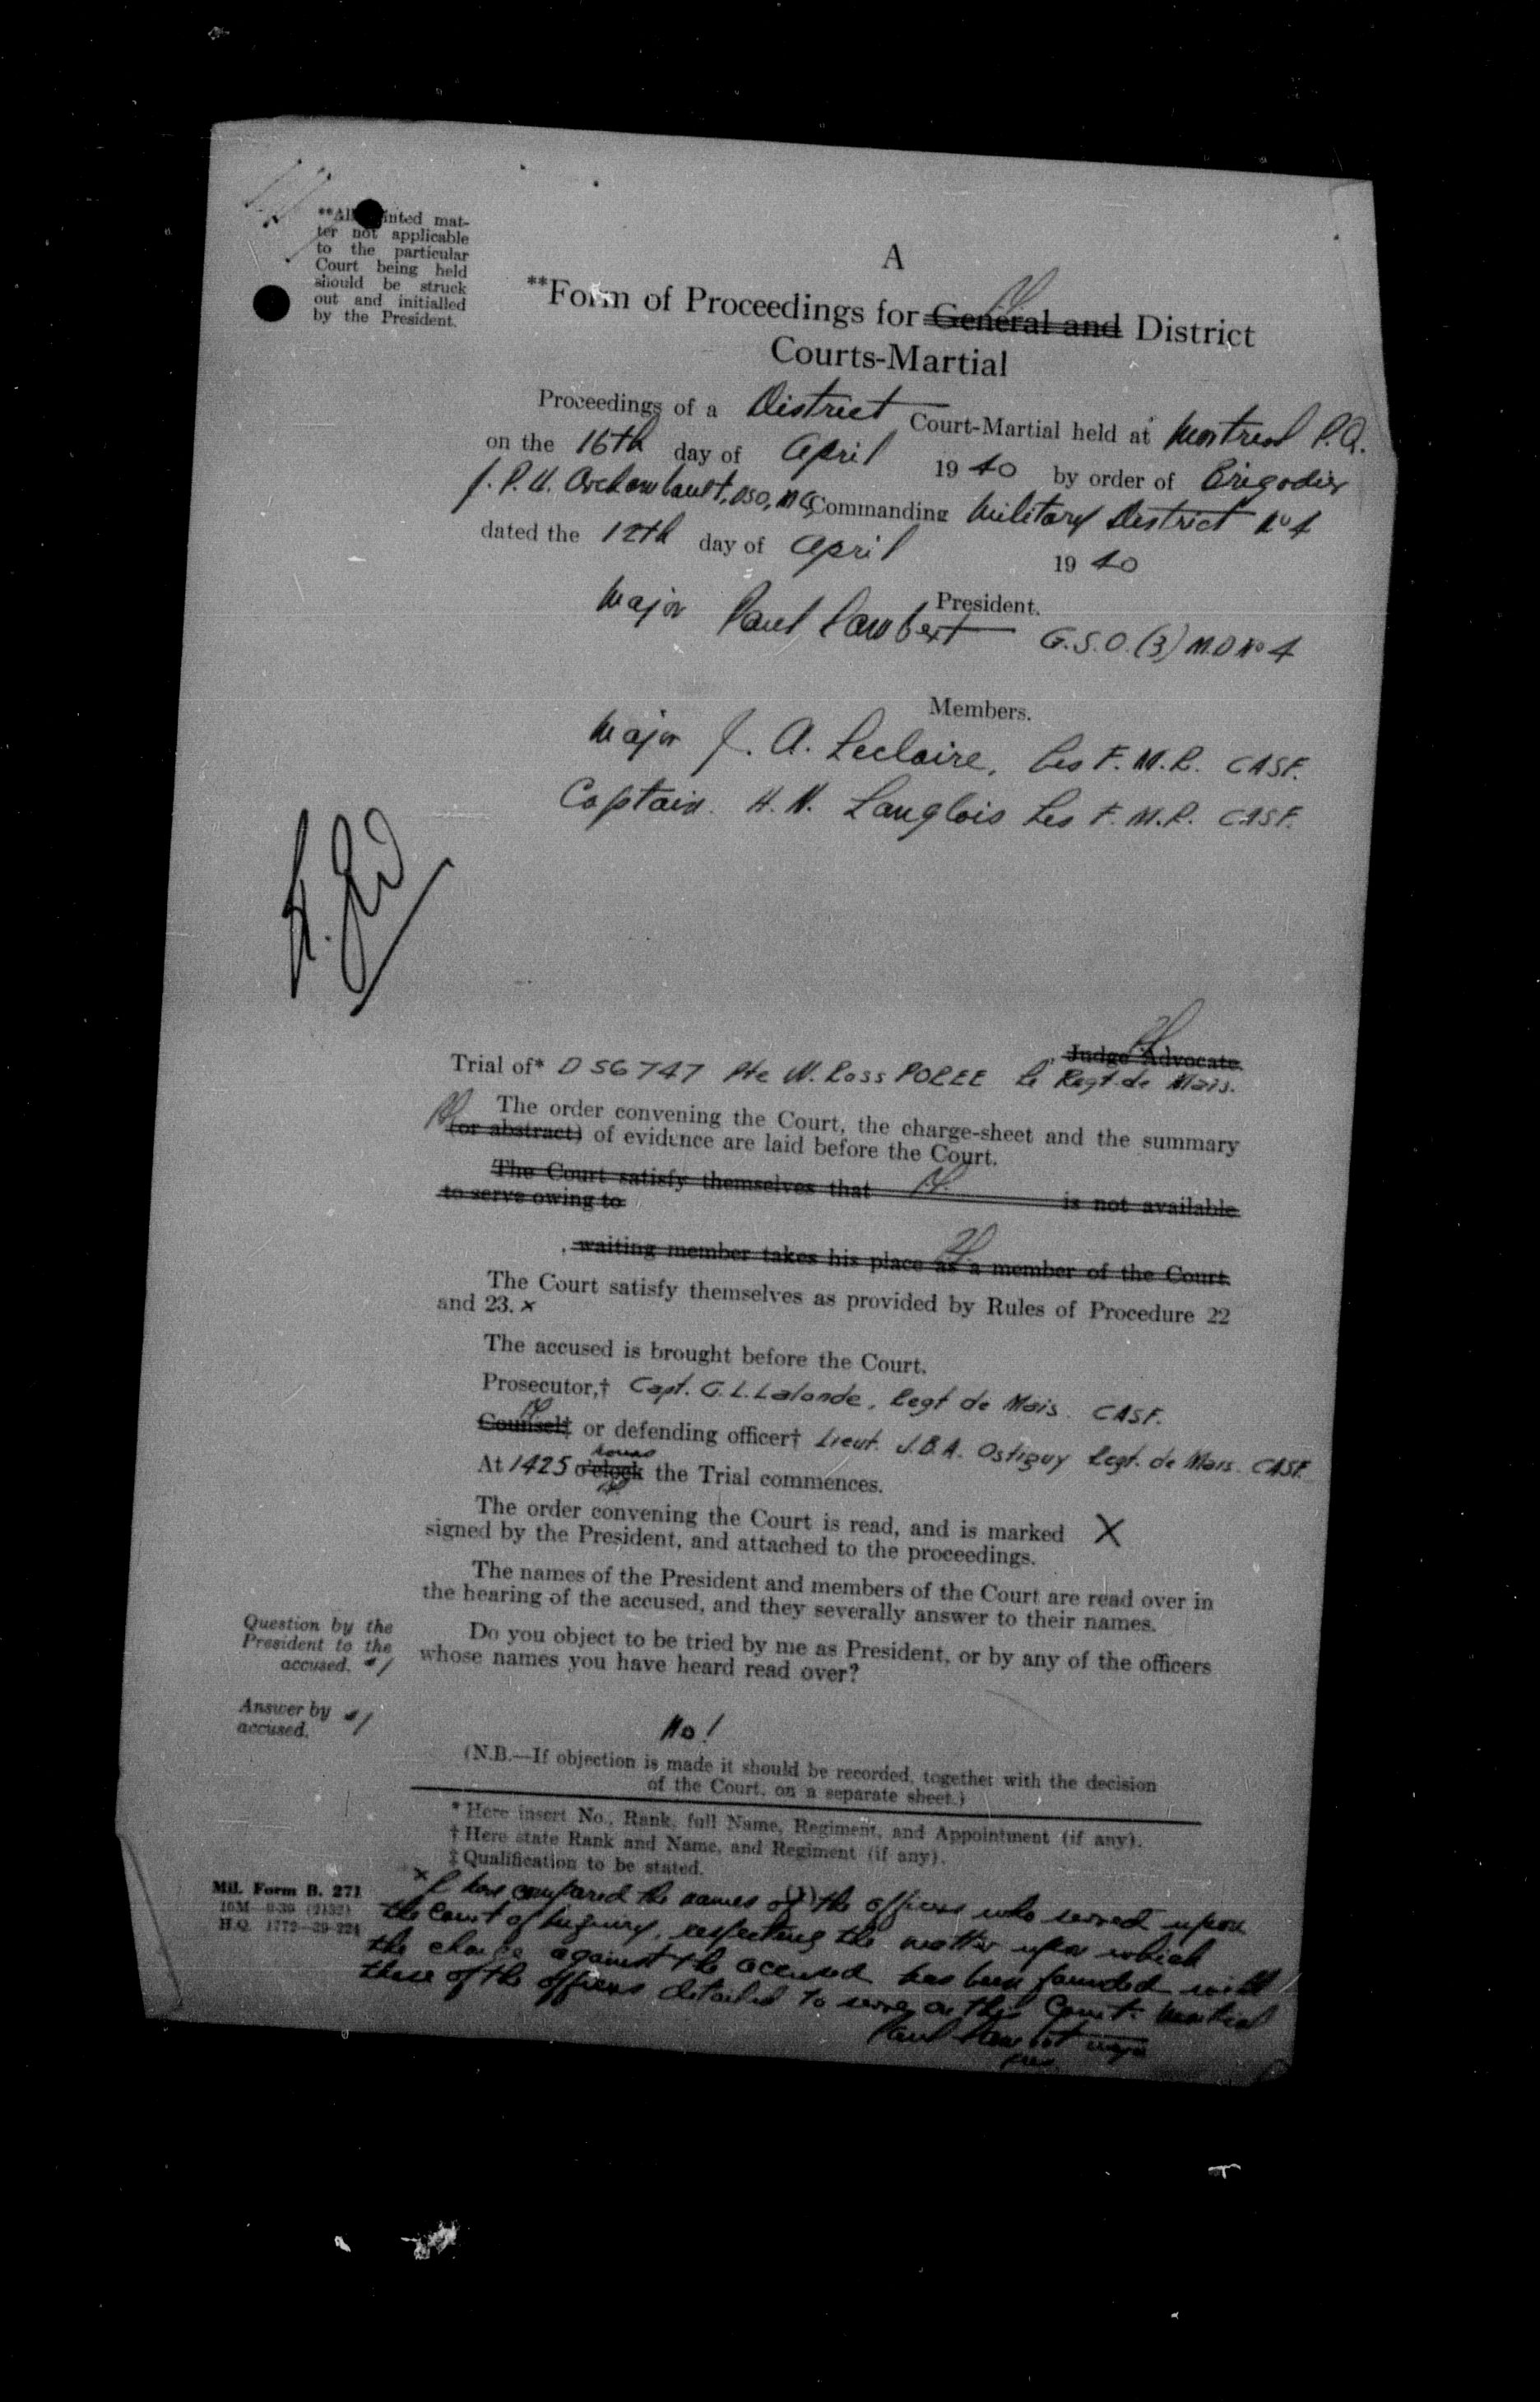 **All printed mat-
ter not applicable
to the particular
Court being held
should be struck
out and initialled
by the President.
A
**Form of Proceedings for General and District
Courts-Martial
Proceedings of a District Court-Martial held at Montreal P.Q.
on the 16th day of April 1940 by order of Brigadier
J. P. U. Archambault, DSO, MC, Commanding Military District No 4
dated the 12th day of April 1940
President.
Major Paul Lambert G.S.O. (3) M.D No 4
Members.
Major J. A. Leclaire, Les F.M.R. CASF.
Captain. H. N. Langlois Les F.M.R. CASF.
Judge Advocate.
Trial of* D 56747 Pte W. Ross POREE Le Regt. de Mais.
The order convening the Court, the charge-sheet and the summary
(or abstract) of evidence are laid before the Court.
The Court satisfy themselves that is not available
to serve owing to
, waiting member takes his place as a member of the Court.
The Court satisfy themselves as provided by Rules of Procedure 22
and 23. x
The accused is brought before the Court.
Prosecutor,† Capt. G. L. Lalonde, Regt de Mais. CASF.
Counsel‡ or defending officer† Lieut. J.B.A. Ostiguy Regt. de Mais. CASF.
At 1425 o'clock hours the Trial commences.
The order convening the Court is read, and is marked X
signed by the President, and attached to the proceedings.
The names of the President and members of the Court are read over in
the hearing of the accused, and they severally answer to their names.
Question by the
President to the
accused.
Do you object to be tried by me as President, or by any of the officers
whose names you have heard read over?
Answer by
accused.
No!
(N.B.—If objection is made it should be recorded, together with the decision
of the Court, on a separate sheet.)
* Here insert No., Rank, full Name, Regiment, and Appointment (if any).
† Here state Rank and Name, and Regiment (if any).
‡ Qualification to be stated.
Mil. Form B. 271
H.Q. 1772-39-224
x I have compared the names of the officers who served upon
the Court of Inquiry, respecting the matter upon which
the charge against the accused has been founded with
those of the officers detailed to serve on this Court-Martial
Paul Lambert Major
Pres.